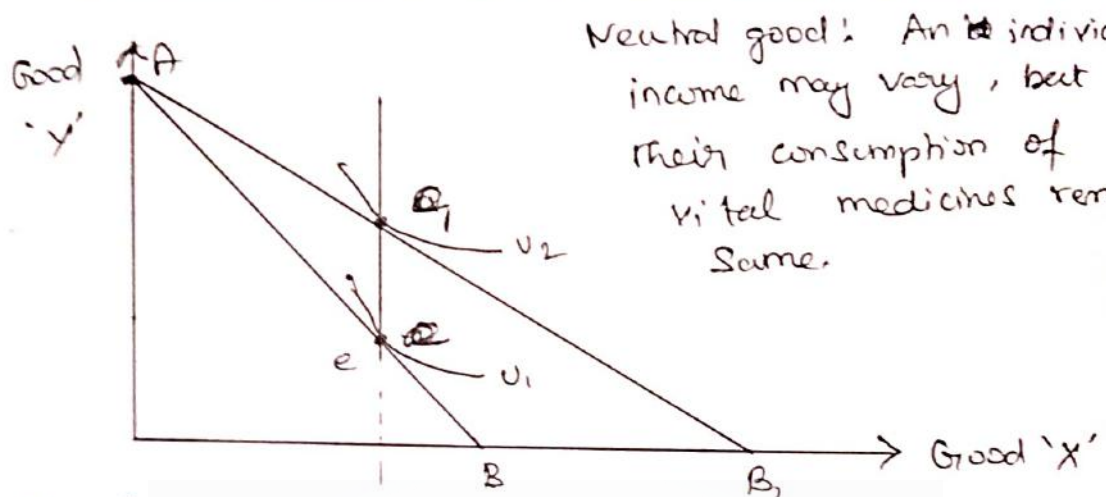 Neutral good: An individ
income may vary, but
their consumption of
vital medicines rem
Same.
Good
'Y'
A
Q1
U2
e
U1
B
B1
Good 'X'